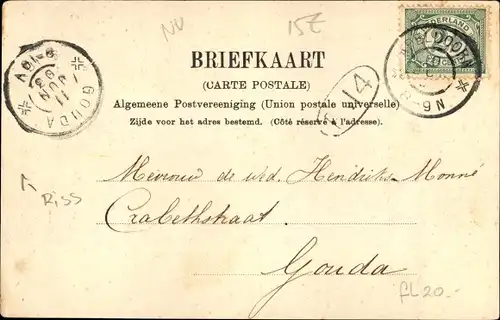 NV
15Z
NEDERLAND
BRIEFKAART
(CARTE POSTALE)
14
Algemeene Postvereeniging (Union postale universelle)
Zijde voor het adres bestemd. (Côté réservé à l'adresse).
GOUDA
11 JUN 03
8-9N
Riss
Mevrouw de wed. Hendrichs-Monné
Crabethstraat
Gouda
fL20.-